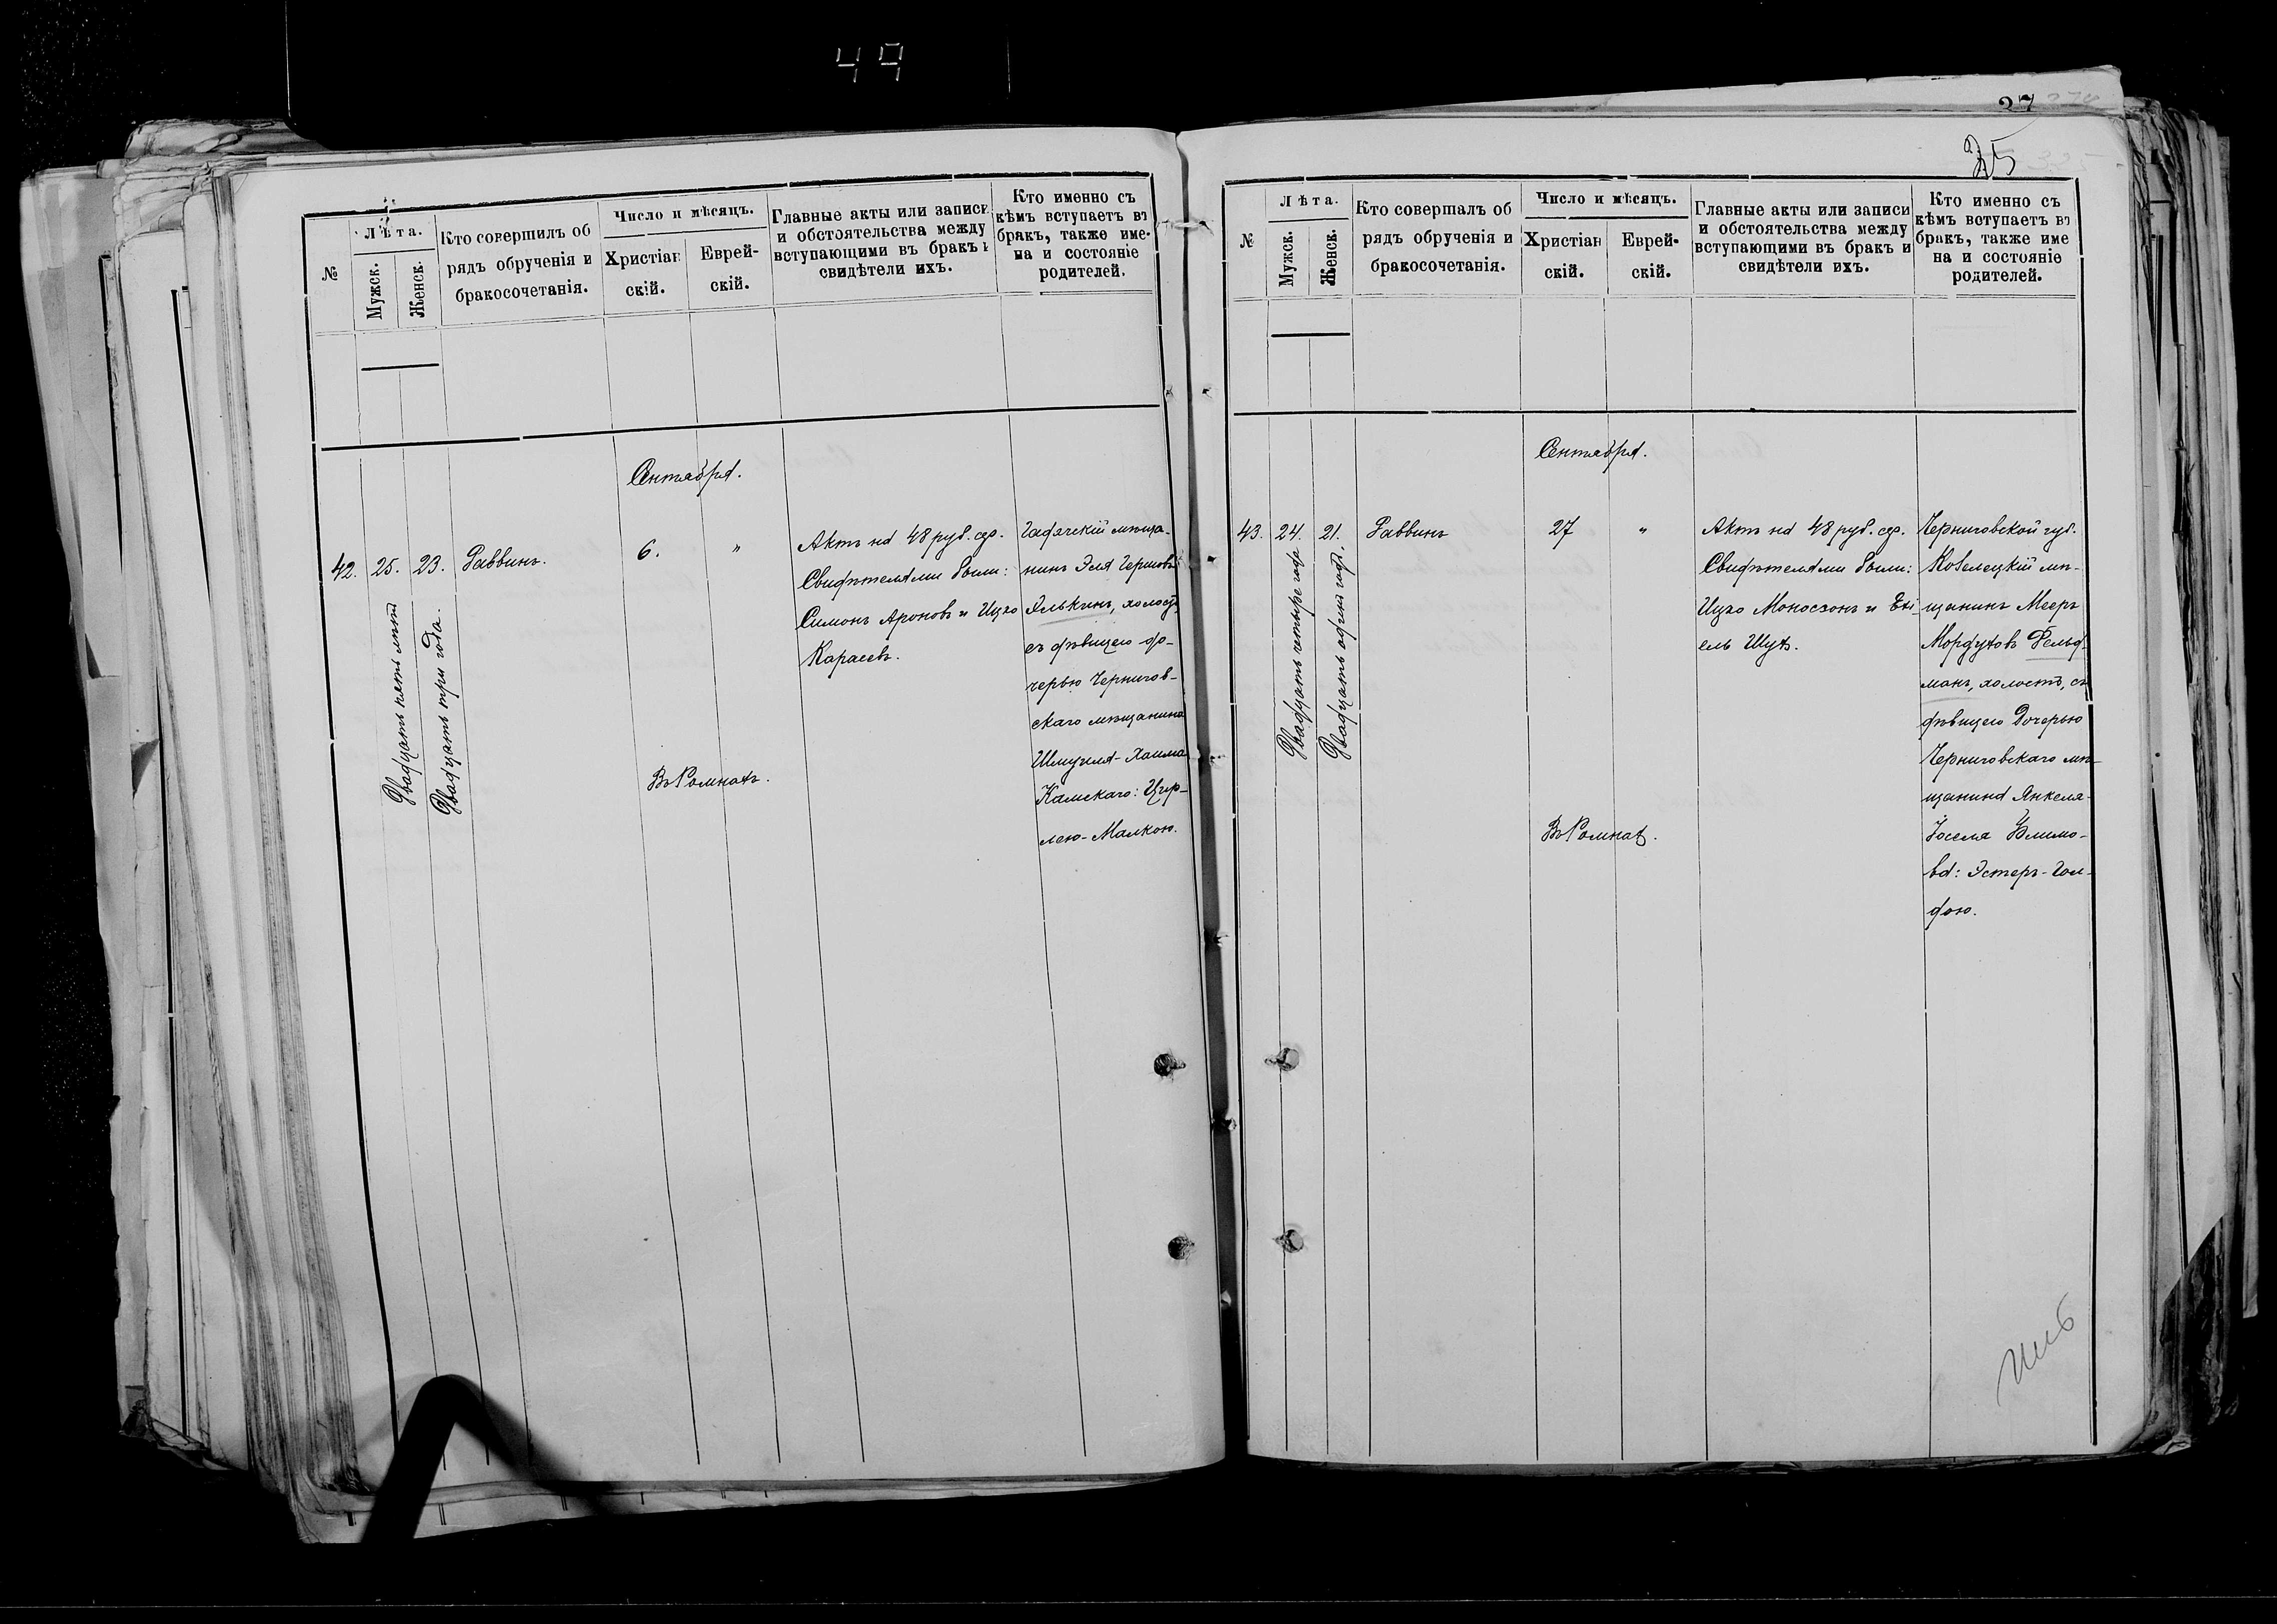 49
37
35
№
Лѣта.
Мужск.
Женск.
Кто совершилъ об
рядъ обрученія и
бракосочетанія.
Число и мѣсяцъ.
Христіан
скій.
Еврей-
скій.
Главные акты или записи
и обстоятельства между
вступающими въ бракъ и
свидѣтели ихъ.
Кто именно съ
кѣмъ вступаетъ въ
бракъ, также име-
на и состояніе
родителей.
Сентября.
42.
25.
Двадцать пять лѣт
23.
Двадцать три года.
Раввинъ.
6.
"
Въ Ромнахъ.
Актъ на 48 руб. сер.
Свидѣтелями были:
Симонъ Ароновъ и Ицко
Карасевъ.
Гадячскій мѣща-
нинъ Эля Гершовъ
Элькинъ, холостъ
съ дѣвицею до-
черью Чернигов-
скаго мѣщанина
Шмуиля-Хаима
Камскаго: Цир-
лею-Малкою.
№
Лѣта.
Мужск.
Женск.
Кто совершалъ об
рядъ обрученія и
бракосочетанія.
Число и мѣсяцъ.
Христіан
скій.
Еврей-
скій.
Главные акты или записи
и обстоятельства между
вступающими въ бракъ и
свидѣтели ихъ.
Кто именно съ
кѣмъ вступаетъ въ
бракъ, также име
на и состояніе
родителей.
Сентября.
43.
24.
Двадцать четыре года
21.
Двадцать одинъ годъ.
Раввинъ
27
"
Въ Ромнах.
Актъ на 48 руб. сер.
Свидѣтелями были:
Ицко Моносзонъ и Ехі-
ель Шухъ.
Черниговской губ.
Козелецкій мѣ-
щанинъ Мееръ
Мордуховъ Фельд-
манъ, холостъ, съ
дѣвицею дочерью
Черниговскаго мѣ-
щанина Янкеля-
Іоселя Климо-
ва: Эстеръ-Гол-
дою.